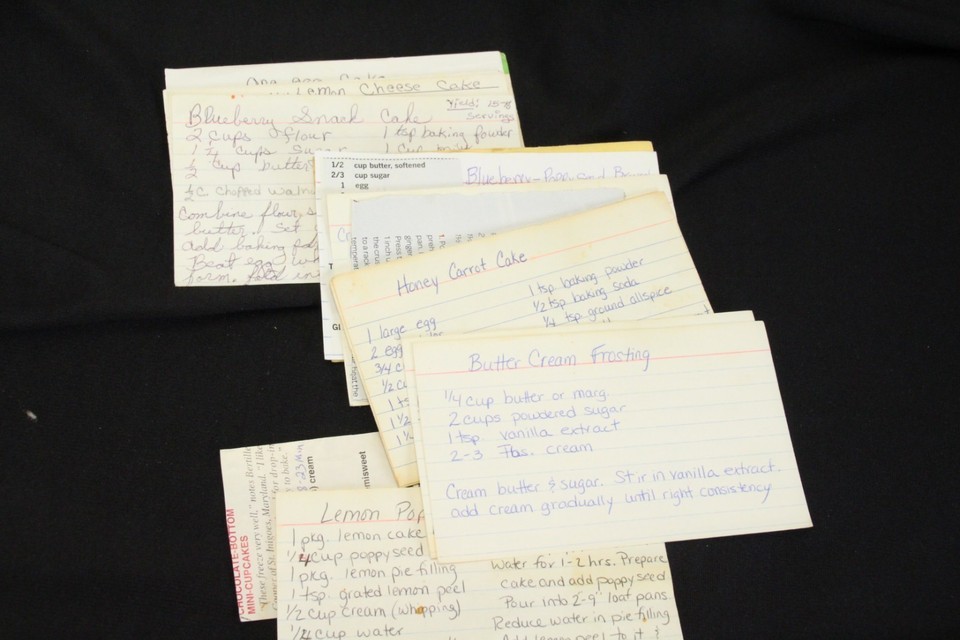 One egg Cake
Lemon Cheese Cake
Blueberry Snack Cake
Yield: 15-8
servings
2 cups flour
1 tsp baking powder
1 1/2 cups Sugar
1 cup
1/2 cup butter
1/2 C chopped waln
Combine flour, s
butter. Set
add baking pow
Beat egg wh
form. fold in
1/2 cup butter, softened
2/3 cup sugar
1 egg
Blueberry-
Honey Carrot Cake
1 large egg
2 egg
3/4 c
1/2 cu
1 ts
1 1/2
1 1/2
1 tsp baking powder
1/2 tsp baking soda
1/4 tsp ground allspice
Butter Cream Frosting
1/4 cup butter or marg.
2 cups powdered sugar
1 tsp. vanilla extract
2-3 Tbs. cream
Cream butter & sugar. Stir in vanilla extract.
add cream gradually until right consistency
CHOCOLATE-BOTTOM
MINI-CUPCAKES
"These freeze very well," notes Bertille
Cooper of St. Inigoes, Maryland. "I like
for drop-in
y to bake."
8-23 Min
) cream
emisweet
Lemon Pop
1 pkg. lemon cake
1/4 cup poppy seed
1 pkg. lemon pie filling
1 tsp. grated lemon peel
1/2 cup cream (whopping)
1/4 cup water
Water for 1-2 hrs. Prepare
cake and add poppy seed
Pour into 2-9" loaf pans.
Reduce water in pie filling
Add lemon peel to it &